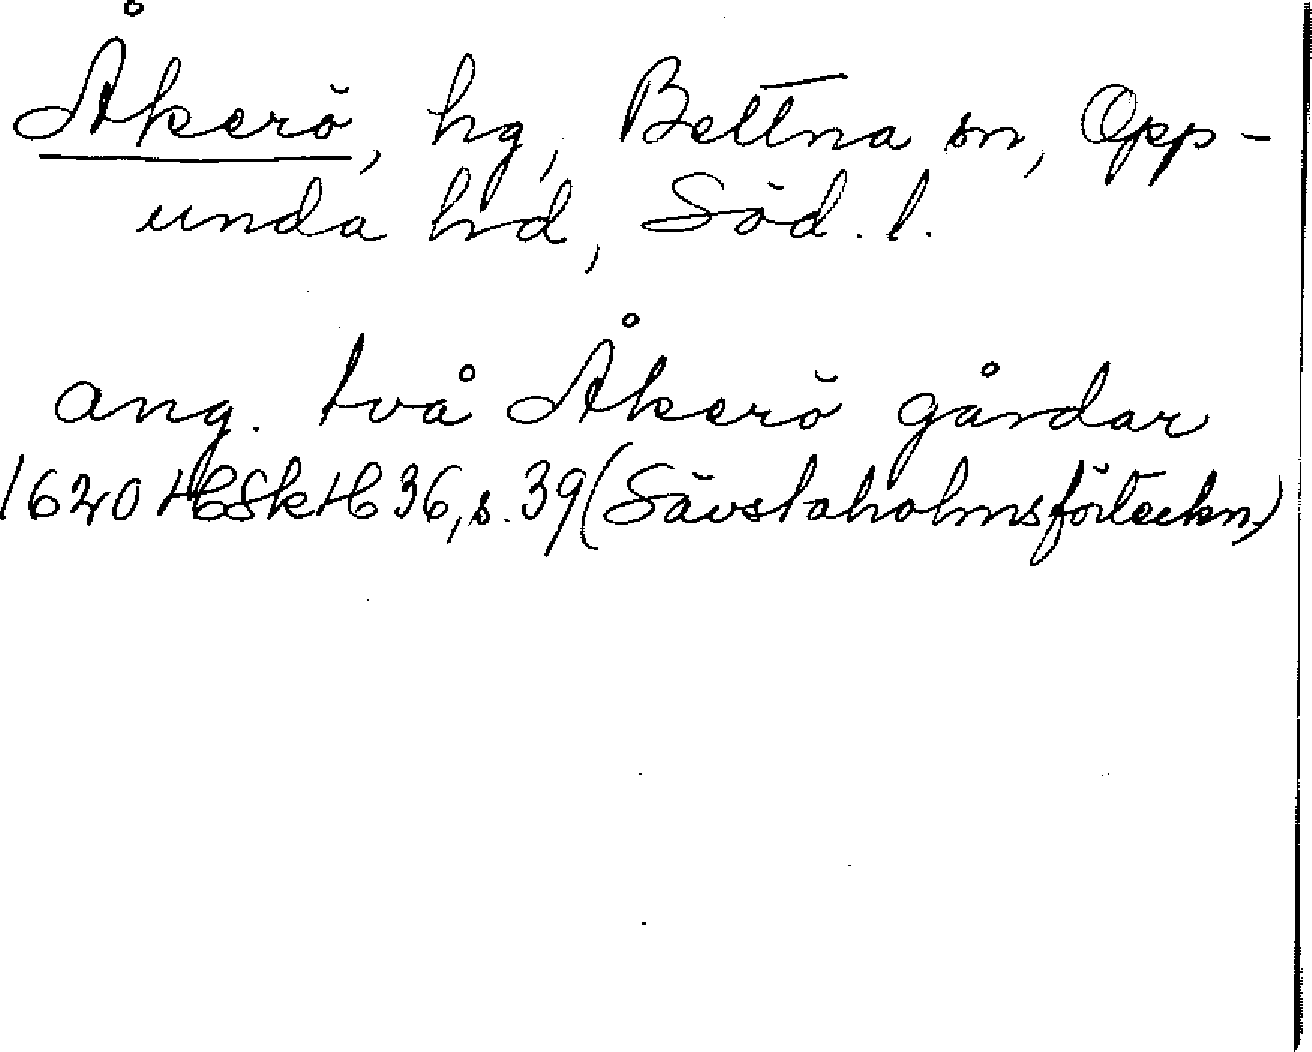 Åkerö, hg, Bettna sn, Opp-
unda hd, Söd. l.
ang. två Åkerö gårdar
1620 HSkH 36, s. 39 (Sävstaholmsförteckn)